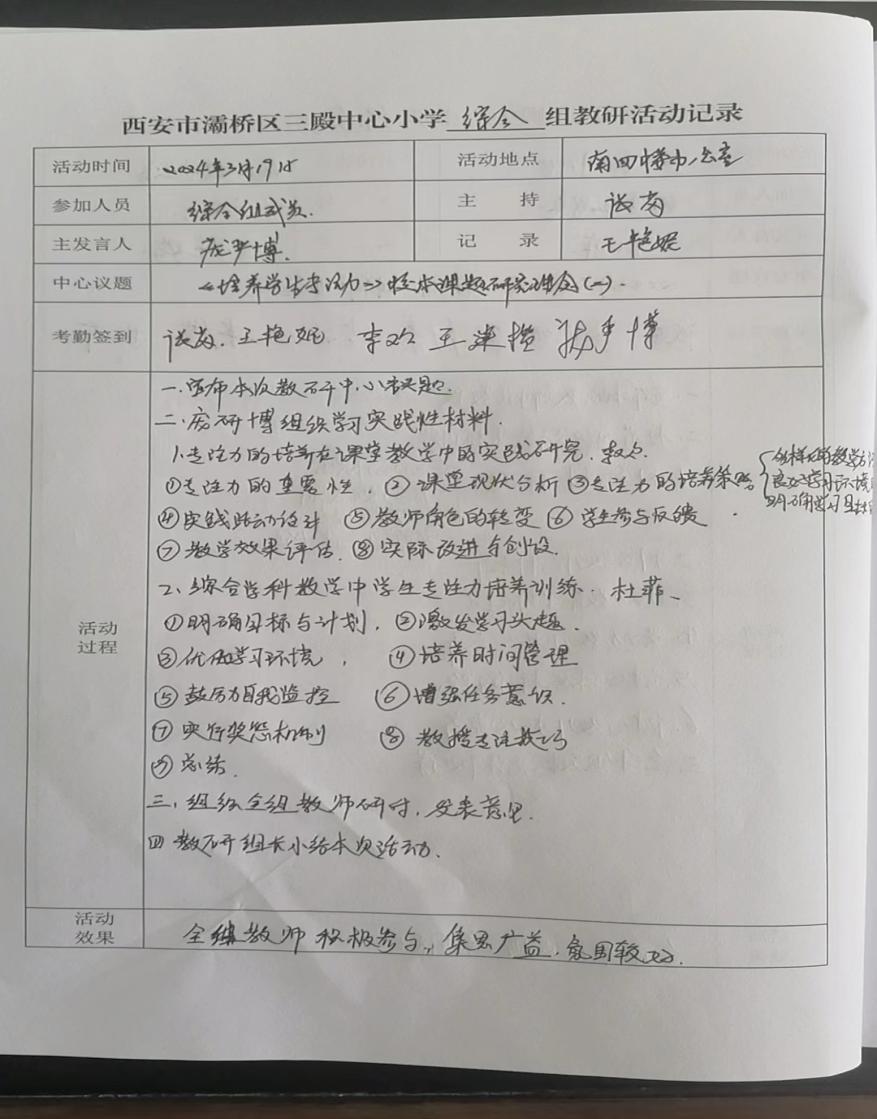 西安市灞桥区三殿中心小学 综合 组教研活动记录
活动时间 2024年3月19日 活动地点 南四楼办公室
参加人员 综合组成员. 主 持
主发言人 记 录 王艳妮
中心议题 《培养学生专注力》校本课题研究理念(一).
考勤签到 王艳妮 李欢
活动过程
一.宣布本次教研中心议题.
二.庞研博组织学习实践性材料.
1.专注力的培养在课堂教学中的实践研究.
①专注力的重要性. ②课堂现状分析 ③专注力的培养策略
良好学习环境
明确学习目标
④实践活动设计 ⑤教师角色的转变 ⑥学生参与反馈
⑦教学效果评估. ⑧实际改进与创设.
2、综合学科教学中学生专注力培养训练. 杜菲
①明确目标与计划. ②激发学习兴趣.
③优化学习环境, ④培养时间管理
⑤鼓励自我监控 ⑥增强任务意识.
⑦实行奖惩机制 ⑧教授专注技巧
⑨总结.
三、组织全组教师研讨,发表意见.
四 教研组长小结本次活动.
活动效果 全组教师积极参与,集思广益,氛围较好.